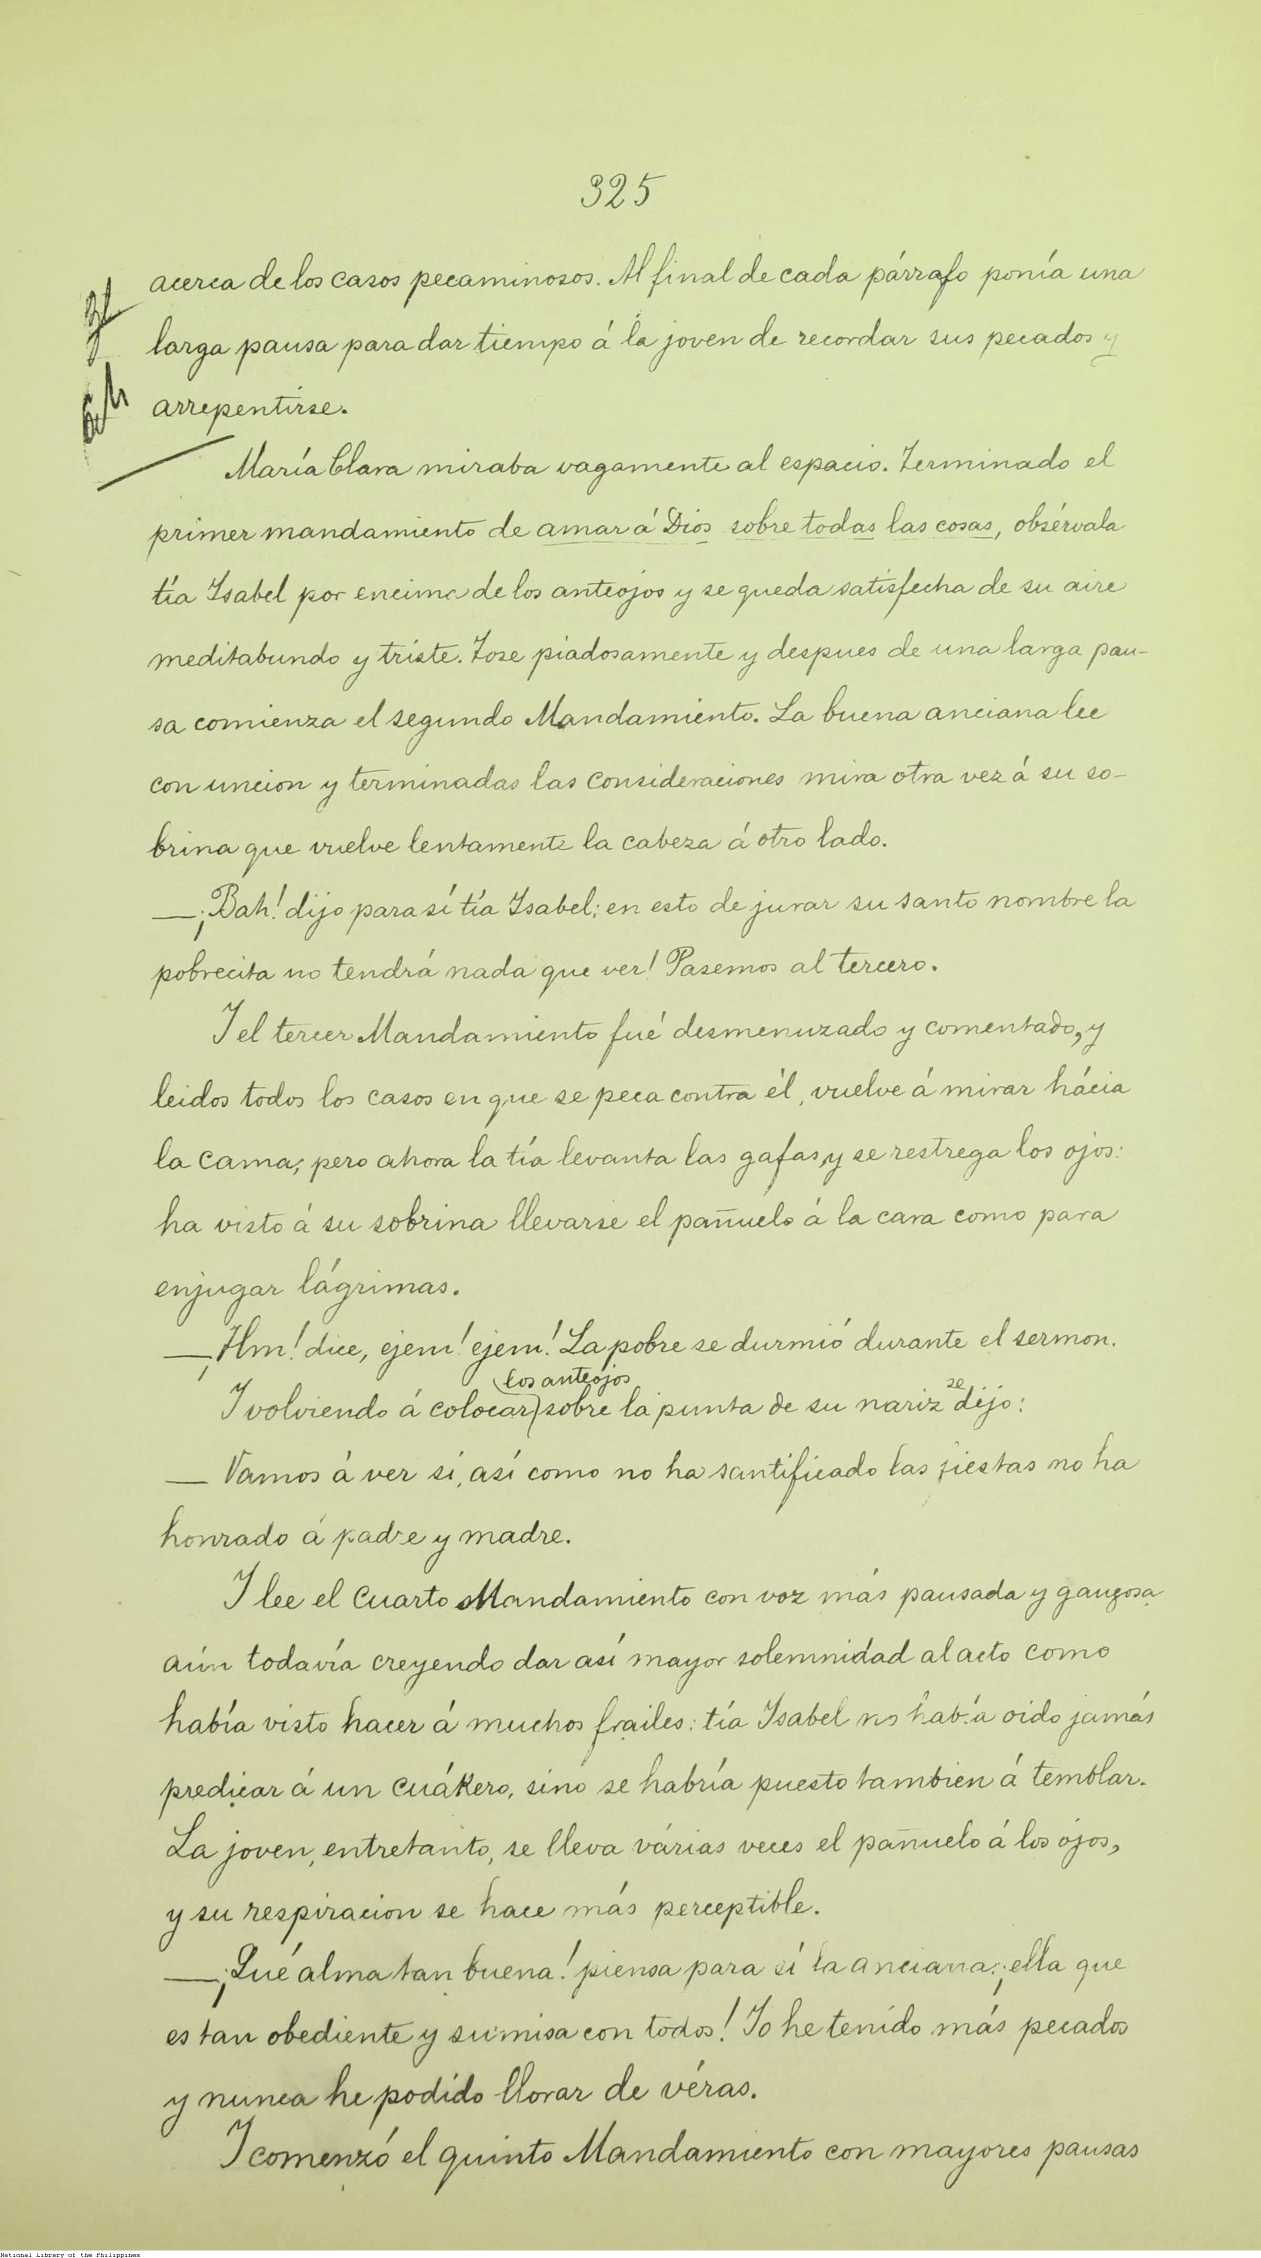 325
acerca de los casos pecaminosos. Al final de cada párrafo ponía una
larga pausa para dar tiempo á la joven de recordar sus pecados y
arrepentirse.
María Clara miraba vagamente al espacio. Terminado el
primer mandamiento de amar á Dios sobre todas las cosas, obsérvala
tía Isabel por encima de los anteojos y se queda satisfecha de su aire
meditabundo y triste. Tose piadosamente y despues de una larga pau-
sa comienza el segundo Mandamiento. La buena anciana lee
con uncion y terminadas las consideraciones mira otra vez á su so-
brina que vuelve lentamente la cabeza á otro lado.
—¡Bah! dijo para sí tía Isabel; en esto de jurar su santo nombre la
pobrecita no tendrá nada que ver! Pasemos al tercero.
Y el tercer Mandamiento fué desmenuzado y comentado, y
leidos todos los casos en que se peca contra él, vuelve á mirar hácia
la cama; pero ahora la tía levanta las gafas, y se restrega los ojos:
ha visto á su sobrina llevarse el pañuelo á la cara como para
enjugar lágrimas.
—¡Hm! dice, ejem! ejem! La pobre se durmió durante el sermon.
los anteojos se
Y volviendo á colocar sobre la punta de su nariz dijo:
— Vamos á ver si, así como no ha santificado las fiestas no ha
honrado á padre y madre.
Y lee el cuarto Mandamiento con voz más pausada y gangosa
aún todavía creyendo dar así mayor solemnidad al acto como
había visto hacer á muchos frailes: tía Isabel no había oido jamás
predicar á un cuákero, sino se habría puesto tambien á temblar.
La joven, entretanto, se lleva várias veces el pañuelo á los ojos,
y su respiracion se hace más perceptible.
—¡Qué alma tan buena! piensa para sí la anciana: ¡ella que
es tan obediente y sumisa con todos! Yo he tenido más pecados
y nunca he podido llorar de véras.
Y comenzó el quinto Mandamiento con mayores pausas
National Library of the Philippines